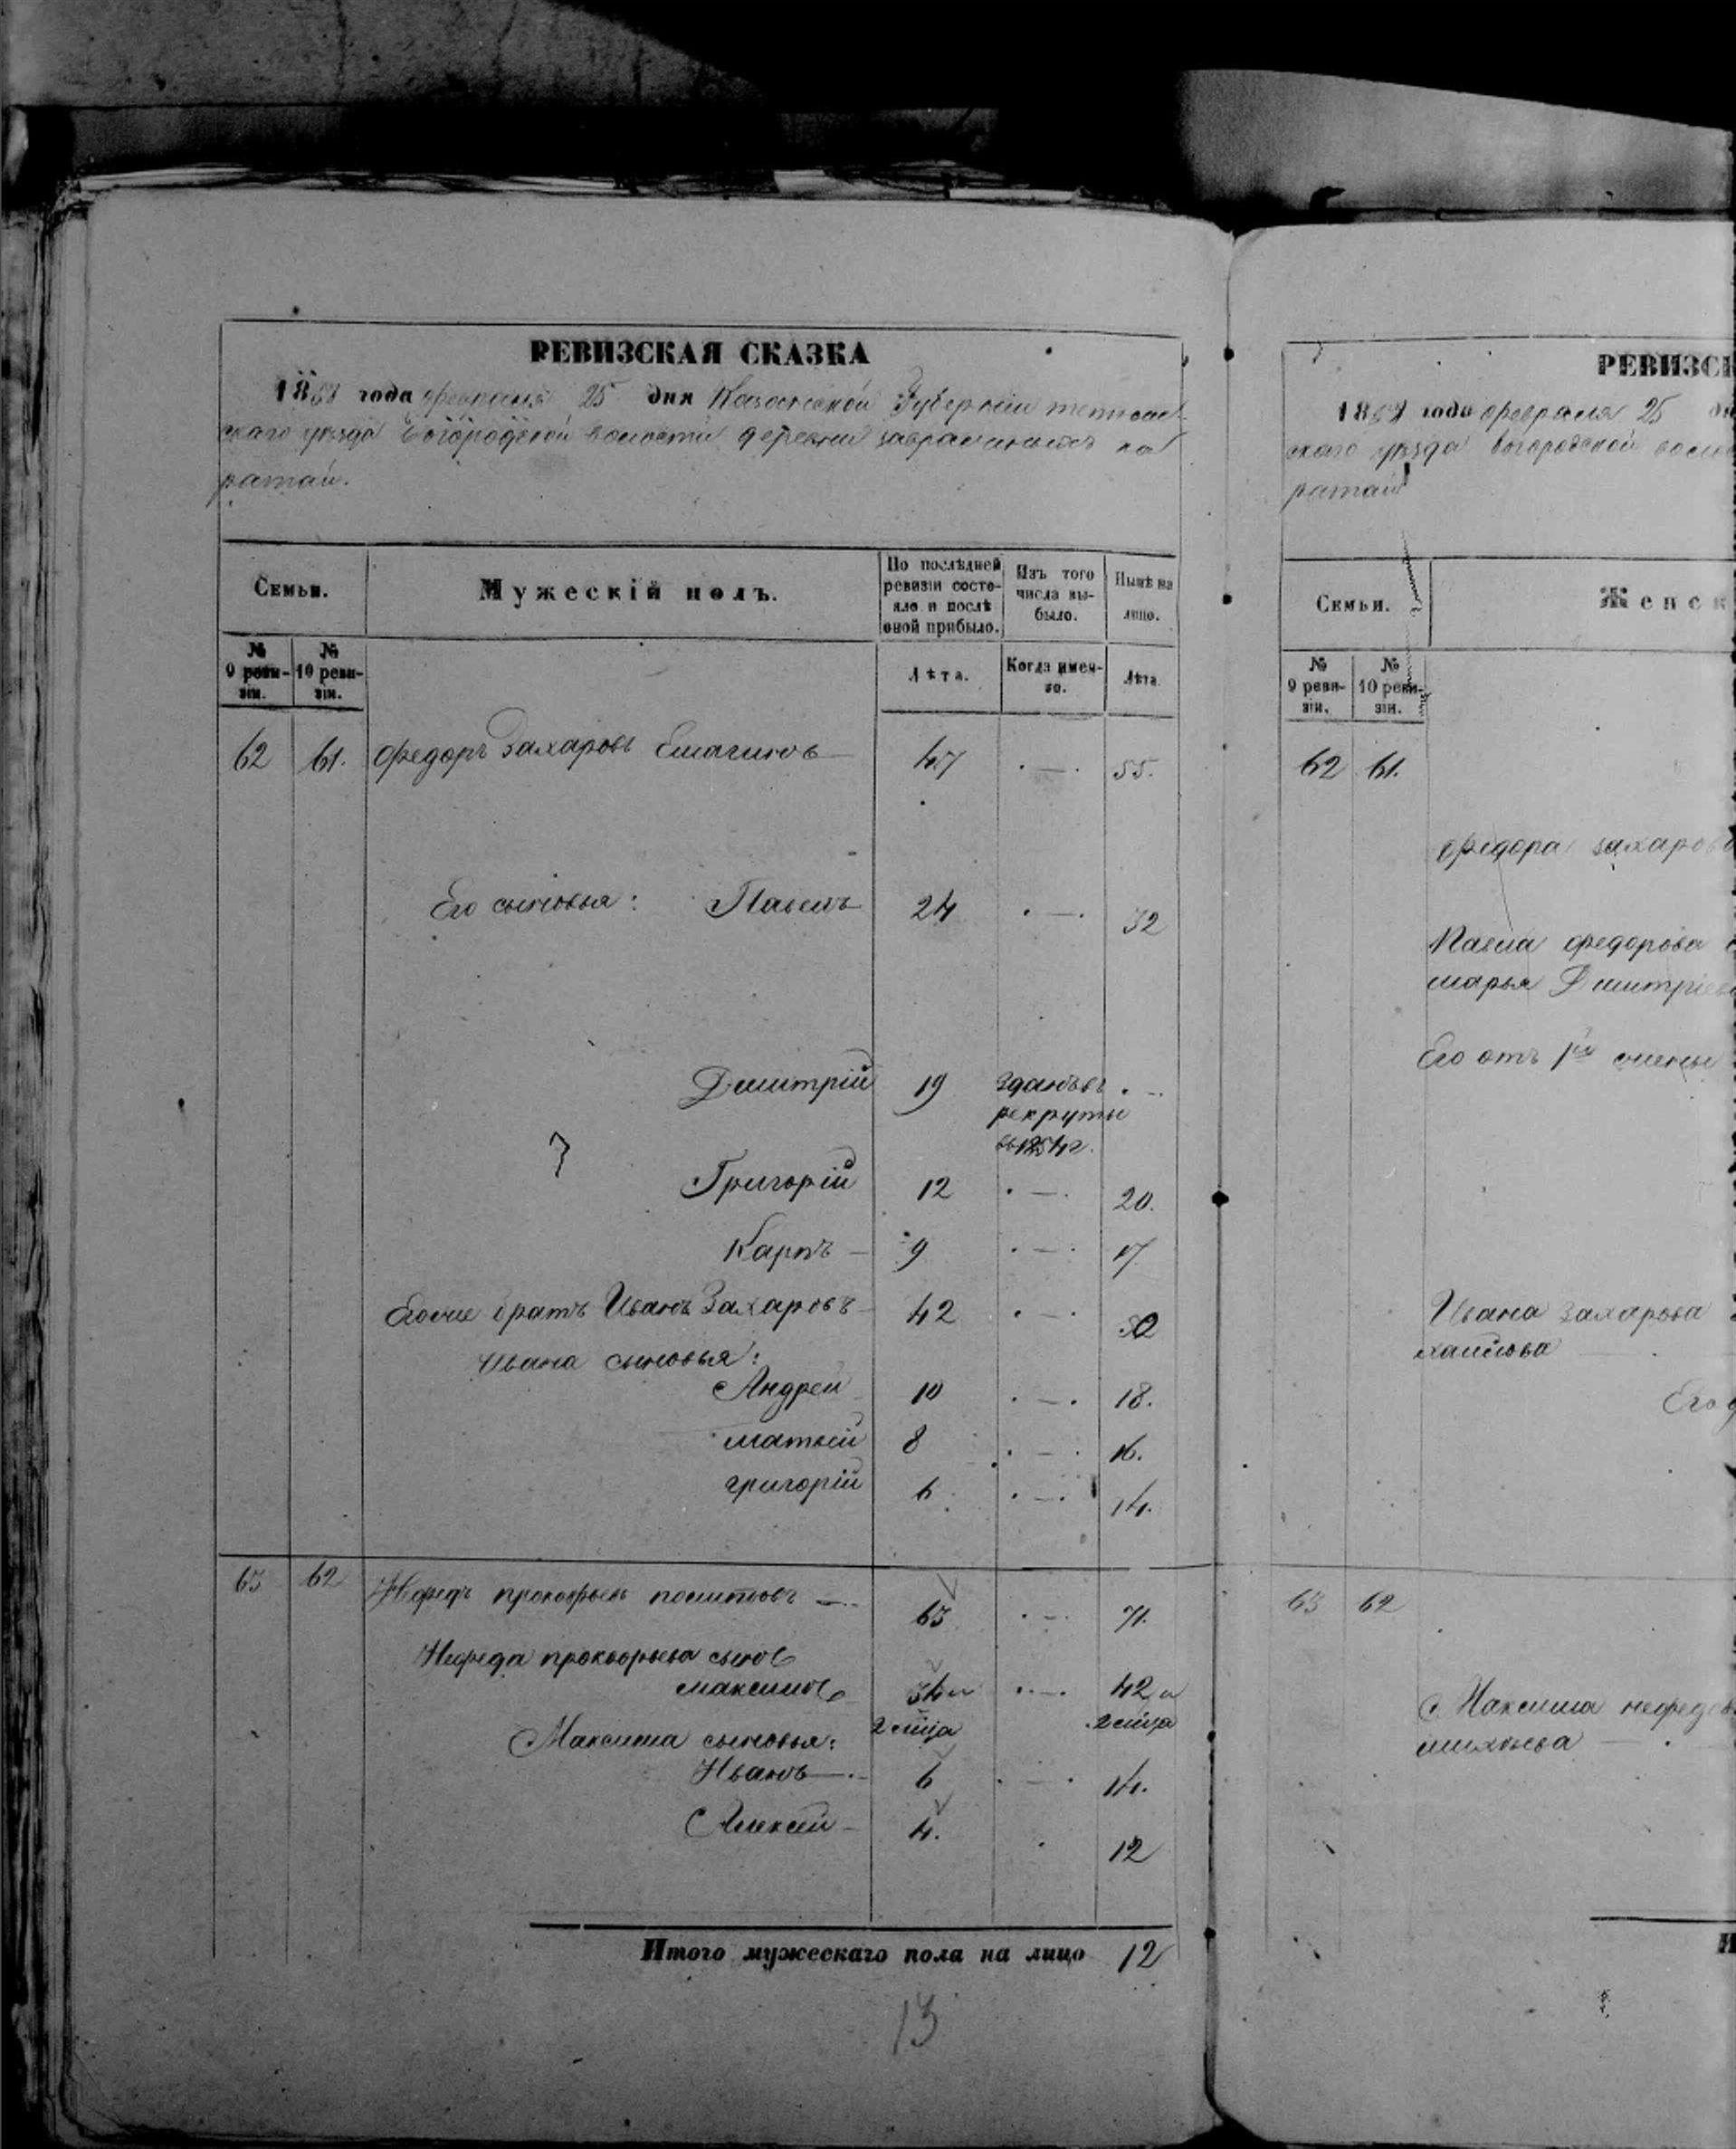 РЕВИЗСКАЯ СКАЗКА
1858 года февраля 25 дня Казанской Губернии тетюш-
скаго уѣзда Богородской волости деревни
ратаи.
Семьи.
Мужескій полъ.
По послѣдней
ревизіи состо-
яло и послѣ
оной прибыло.
Изъ того
числа вы-
было.
Нынѣ на
лицо.
№
9 реви-
зіи.
№
10 реви-
зіи.
Лѣта.
Когда имен-
но.
Лѣта
62 61. Федоръ Захаровъ 47 . — . 55.
Его сыновья: Павелъ 24 . — . 32
Дмитрій 19 зданъ въ . —
рекруты
въ 1854 г.
Григорій 12 . — . 20.
Карпъ — 9 . — . 17
Егоже братъ Иванъ Захаровъ 42 . — . 50
Ивана сыновья:
Андрей 10 . — . 18.
матвей 8 . — . 16.
григорій 6 . — . 14.
63 62 Нефедъ прокофьевъ — 63 . — . 71.
Нефеда прокофьева сынъ
максимъ 34 и . — . 42 и
2 м͠ца 2 м͠ца
Максима сыновья:
Иванъ — . 6 . — . 14.
Алексей — 4. . 12
Итого мужескаго пола на лицо 12
13
РЕВИЗС
1858 года февраля 25
скаго уѣзда богородской
ратаи
Семьи.
Женск
№
9 реви-
зіи.
№
10 реви-
зіи.
62 61.
федора захарова
Павла федорова
марья Дмитріев
Его отъ 1й жены
Ивана захарова
Его
63 62
Максима нефедов